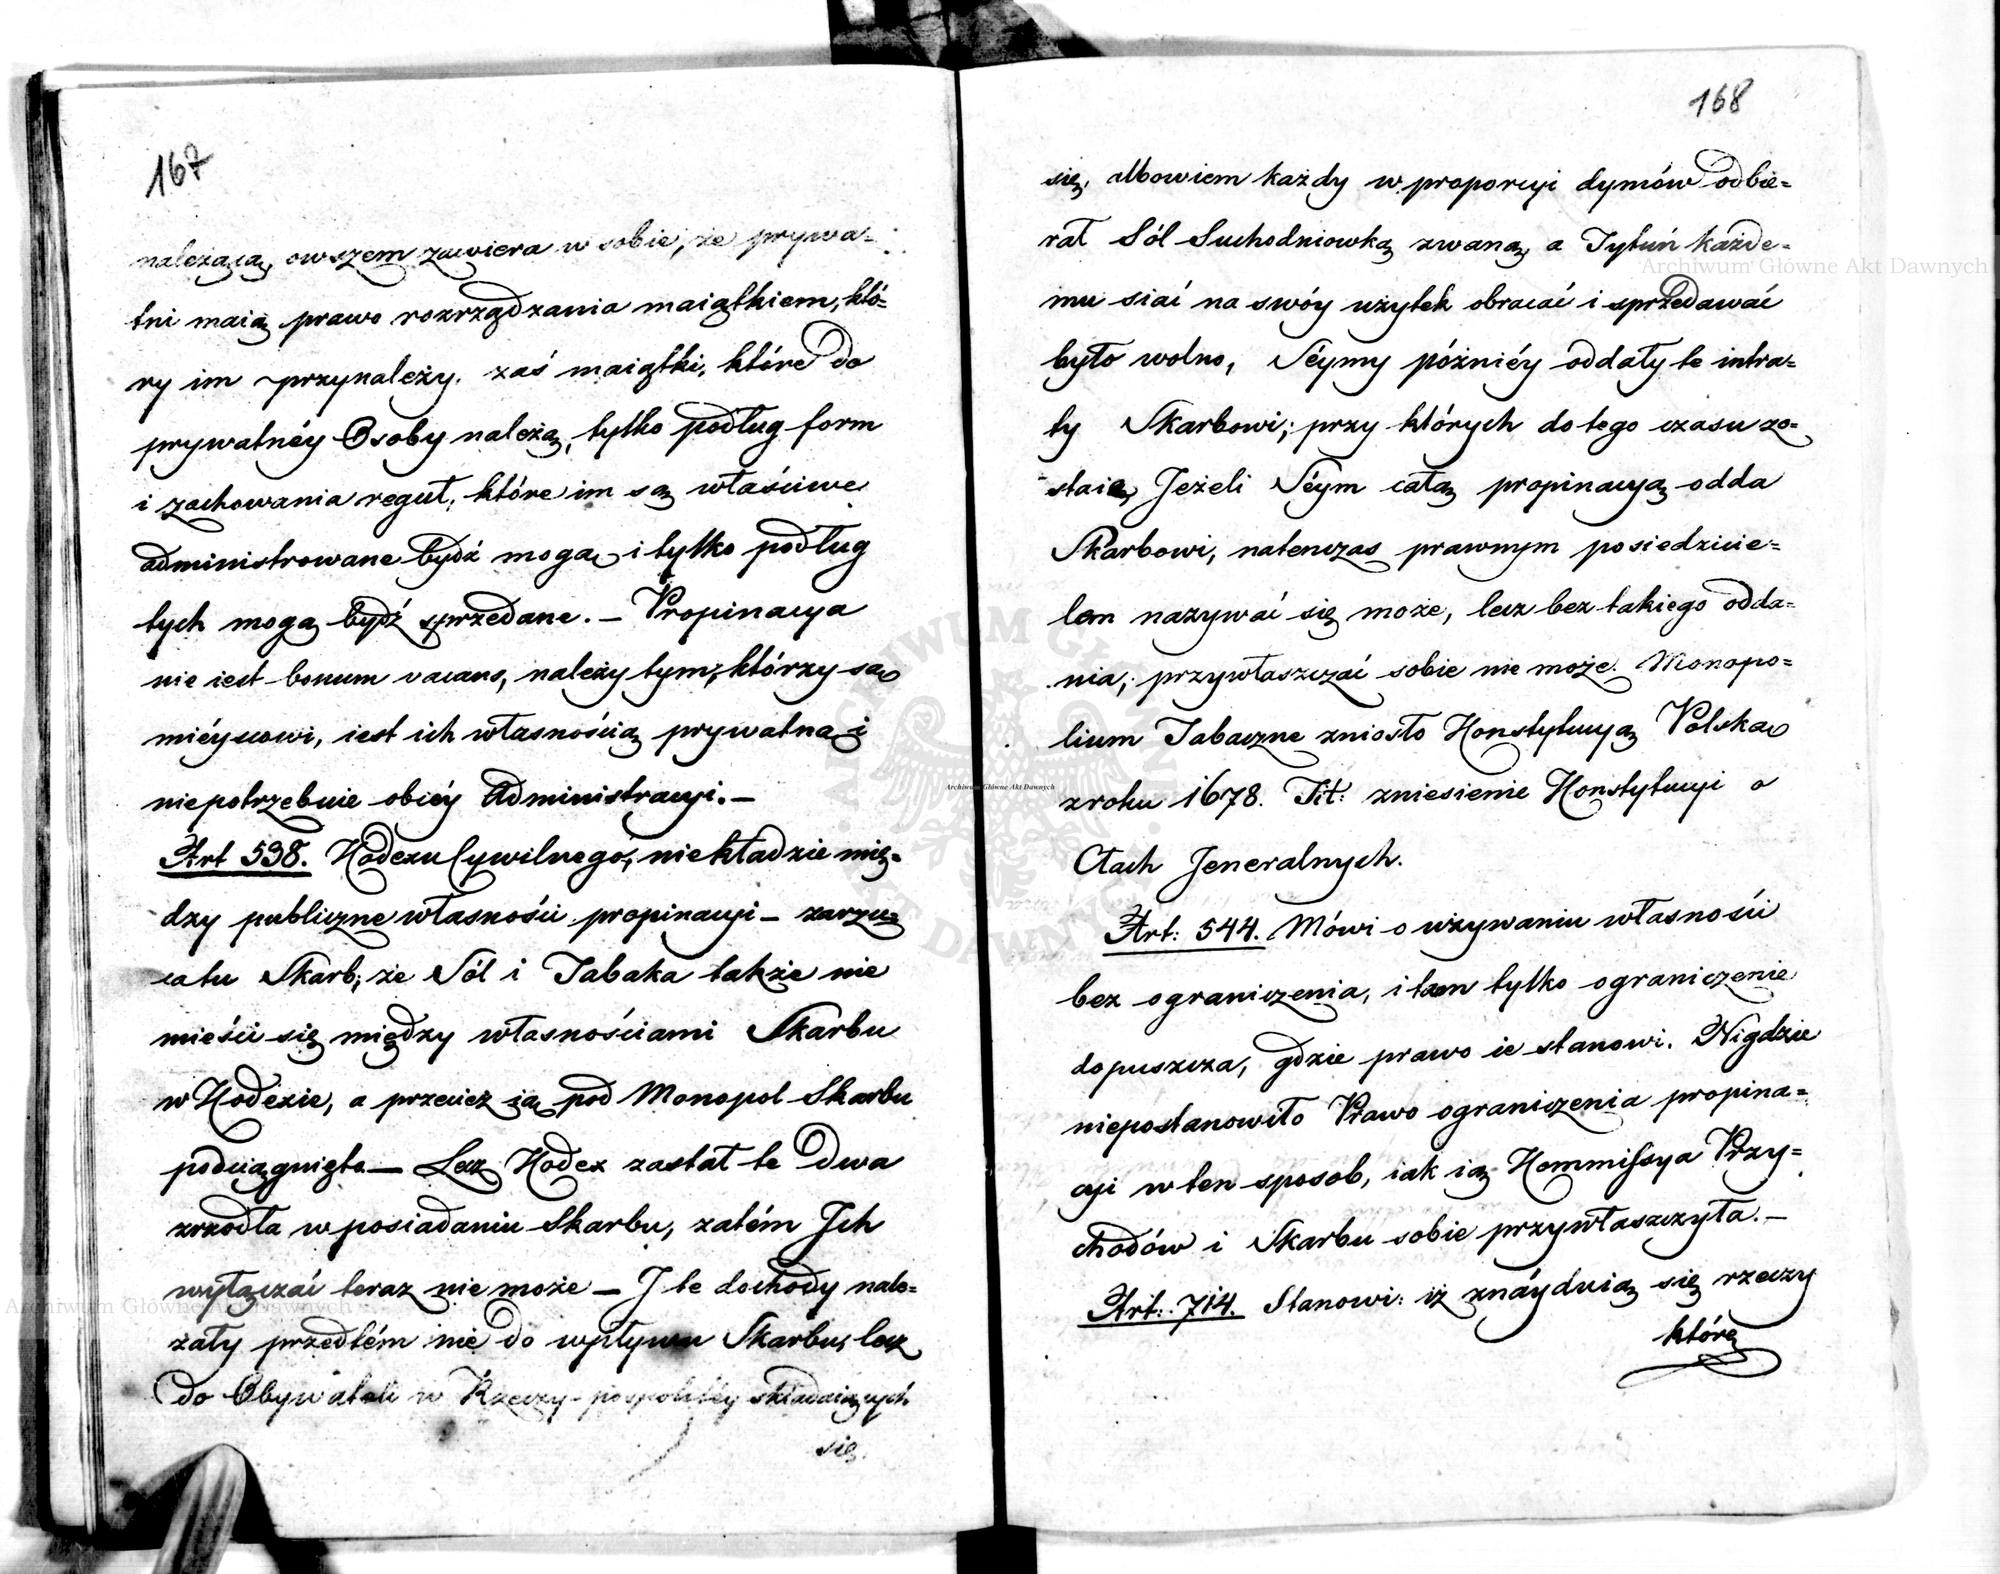 167
należącą, owszem zawiera w sobie, że prywa=
tni maią prawo rozrządzania maiątkiem, któ=
ry im przynależy. zaś maiątki, które do
prywatnéy Osoby należą, tylko podług form
i zachowania reguł, które im są właściwe
administrowane bydź mogą i tylko podług
tych mogą bydź sprzedane. — Propinacya
nie iest bonum vacans, należy tym, którzy są
mieyscowi, iest ich własnością prywatną i
niepotrzebuie obcéy Administracyi. —
Art 538. Kodexu Cywilnego, niekładzie mię=
dzy publiczne własności propinacyi — zarzu=
ca tu Skarb, że Sól i Tabaka także nie
mieści się między własnościami Skarbu
w Kodexie, a przecież są pod Monopol Skarbu
podciągnięte — Lecz Kodex zastał te dwa
zrzodła w posiadaniu Skarbu, zatém Ich
wyłączać teraz nie może — I te dochody nale=
żały przedtém nie do wpływu Skarbu, lecz
do Obywateli w Rzeczy-pospolitéy składaiących
się.
168
się, albowiem każdy w proporcyi dymów odbie=
rał Sól Suchodniowką zwaną, a Tytuń każde=
mu siać na swóy użytek obracać i sprzedawać
było wolno, Séymy późniéy oddały te intra=
ty Skarbowi; przy których do tego czasu zo=
staie, Jeżeli Séym całą propinacyą odda
Skarbowi, natenczas prawnym posiedzicie=
lem nazywać się może, lecz bez takiego odda=
nia, przywłaszczać sobie nie może. Monopo=
lium Tabaczne zniosło Konstytucyą Polską
z roku 1678. Tit: zniesienie Konstytucyi o
Cłach Jeneralnych.
Art: 544. Mówi o używaniu własności
bez ograniczenia, i tam tylko ograniczenie
dopuszcza, gdzie prawo ie stanowi. Nigdzie
niepostanowiło Prawo ograniczenia propina=
cyi w ten sposob, iak ią Kommissya Przy=
chodów i Skarbu sobie przywłaszczyła. —
Art: 714. Stanowi: iż znáyduią się rzeczy
które
Archiwum Główne Akt Dawnych
Archiwum Główne Akt Dawnych
Archiwum Główne Akt Dawnych
ARCHIWUM GŁÓWNE AKT DAWNYCH